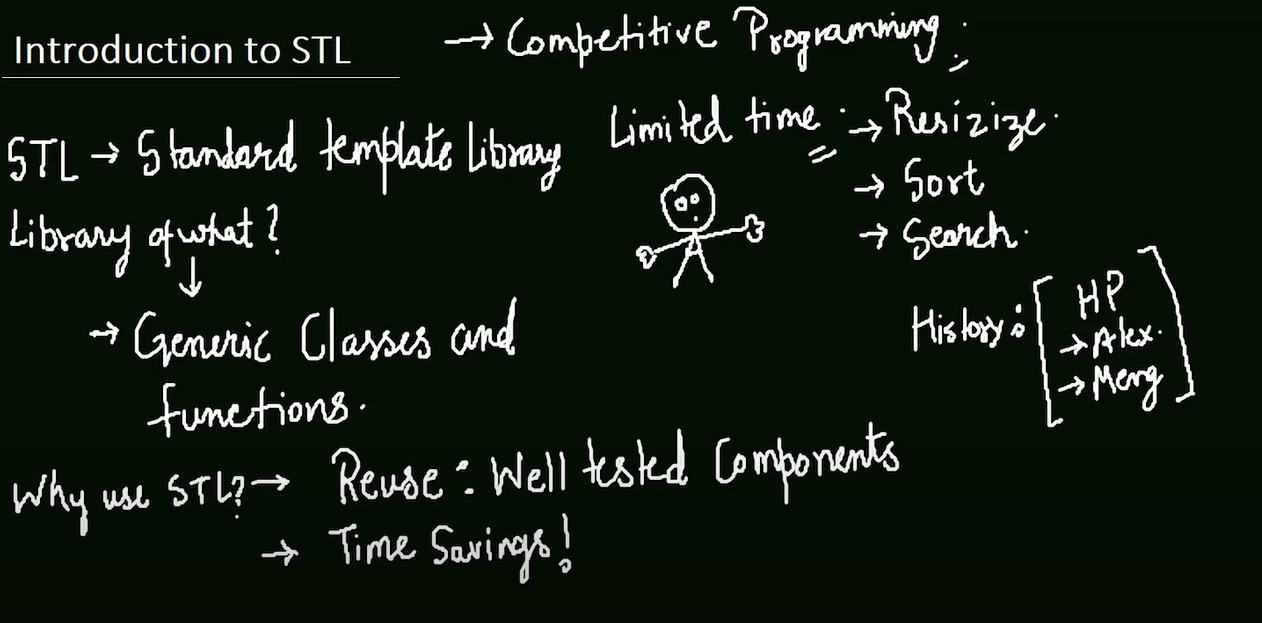 Introduction to STL
→ Competitive Programming.
STL → Standard template Library
Library of what?
↓
→ Generic Classes and
functions.
Limited time. → Resizize.
→ Sort
→ Search.
History: HP
→ Alex.
→ Meng
Why use STL? → Reuse: Well tested Components
→ Time Savings!